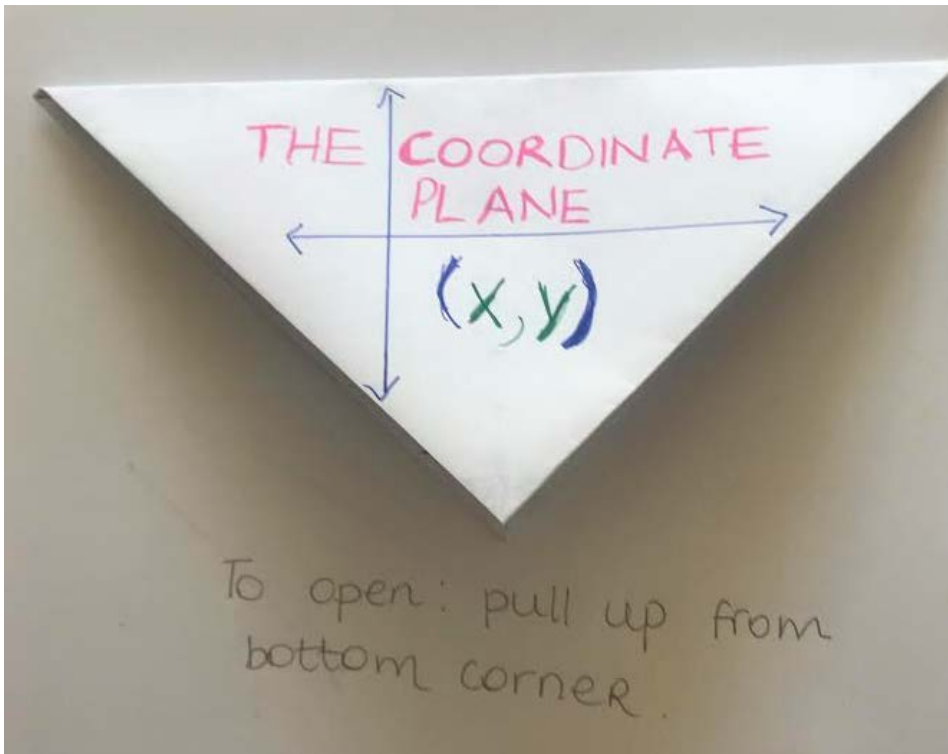 THE COORDINATE
PLANE
(x,y)
To open: pull up from
bottom corner.